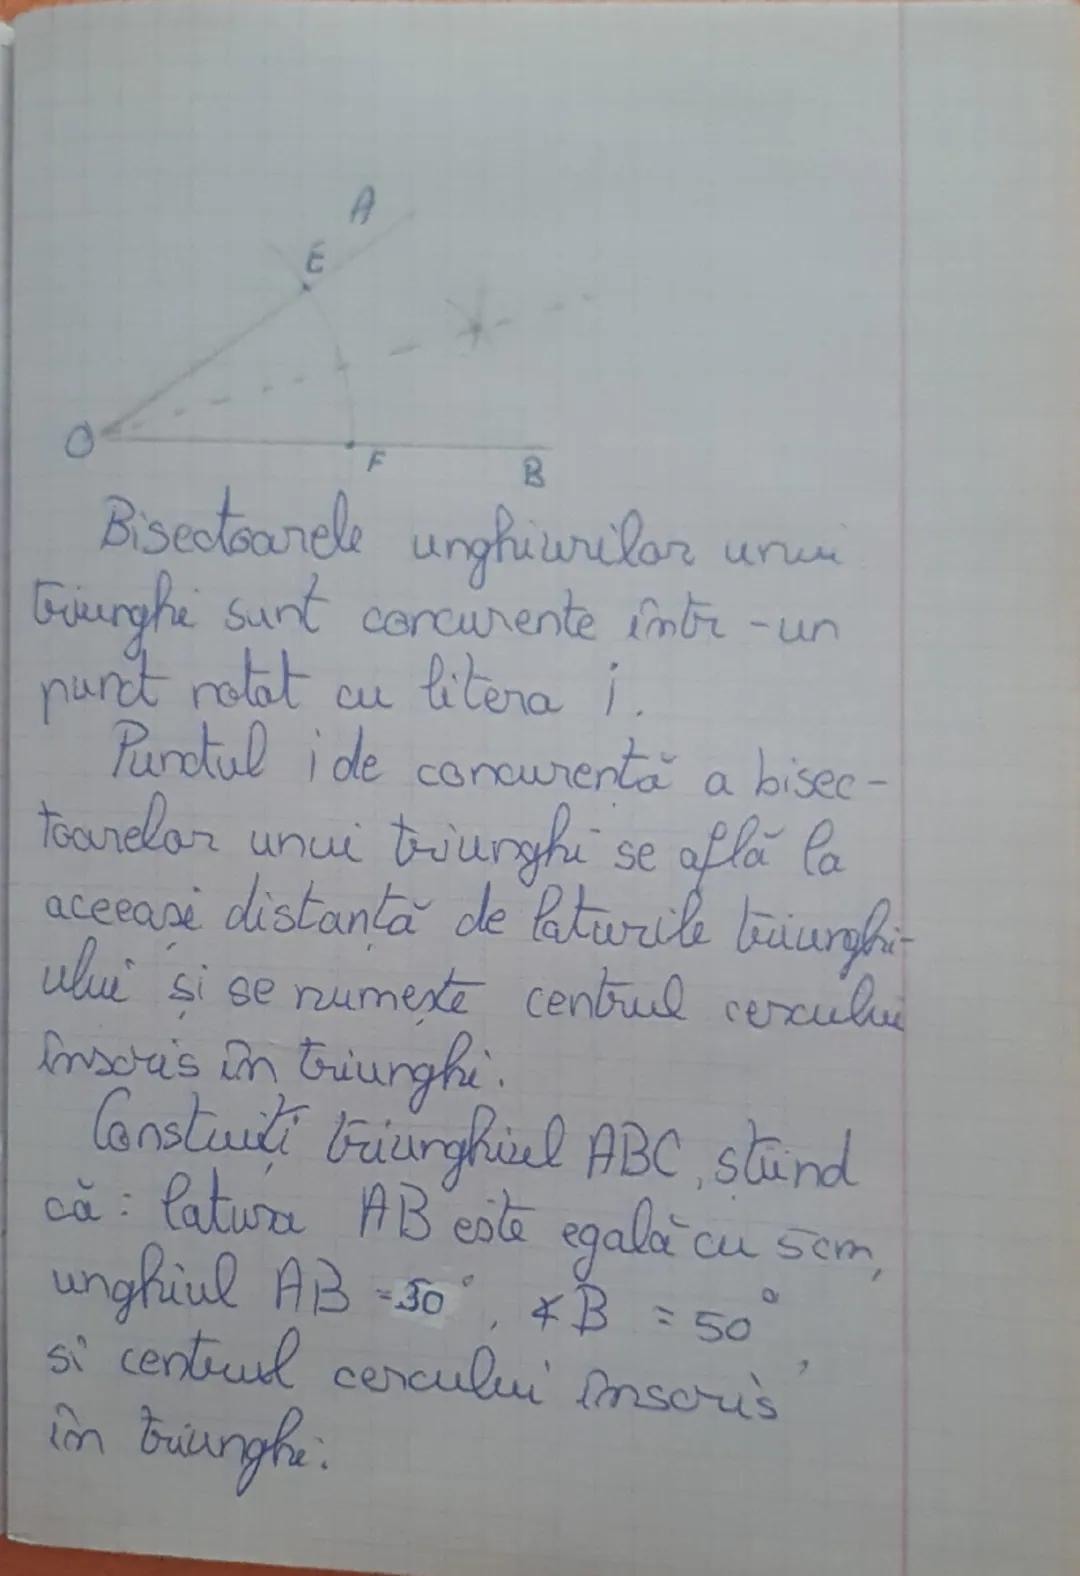 A
E
O
F
B
Bisectoarele unghiurilor unui
triunghi sunt concurente într-un
punct notat cu litera i.
Punctul i de concurentă a bisec-
toarelor unui triunghi se află la
aceeași distanță de laturile triunghi-
ului și se numește centrul cercului
înscris în triunghi.
Constuiți triunghiul ABC, știind
că: latura AB este egală cu 5cm,
unghiul AB =30°, ∢B = 50°,
si centrul cercului înscris
în triunghi.